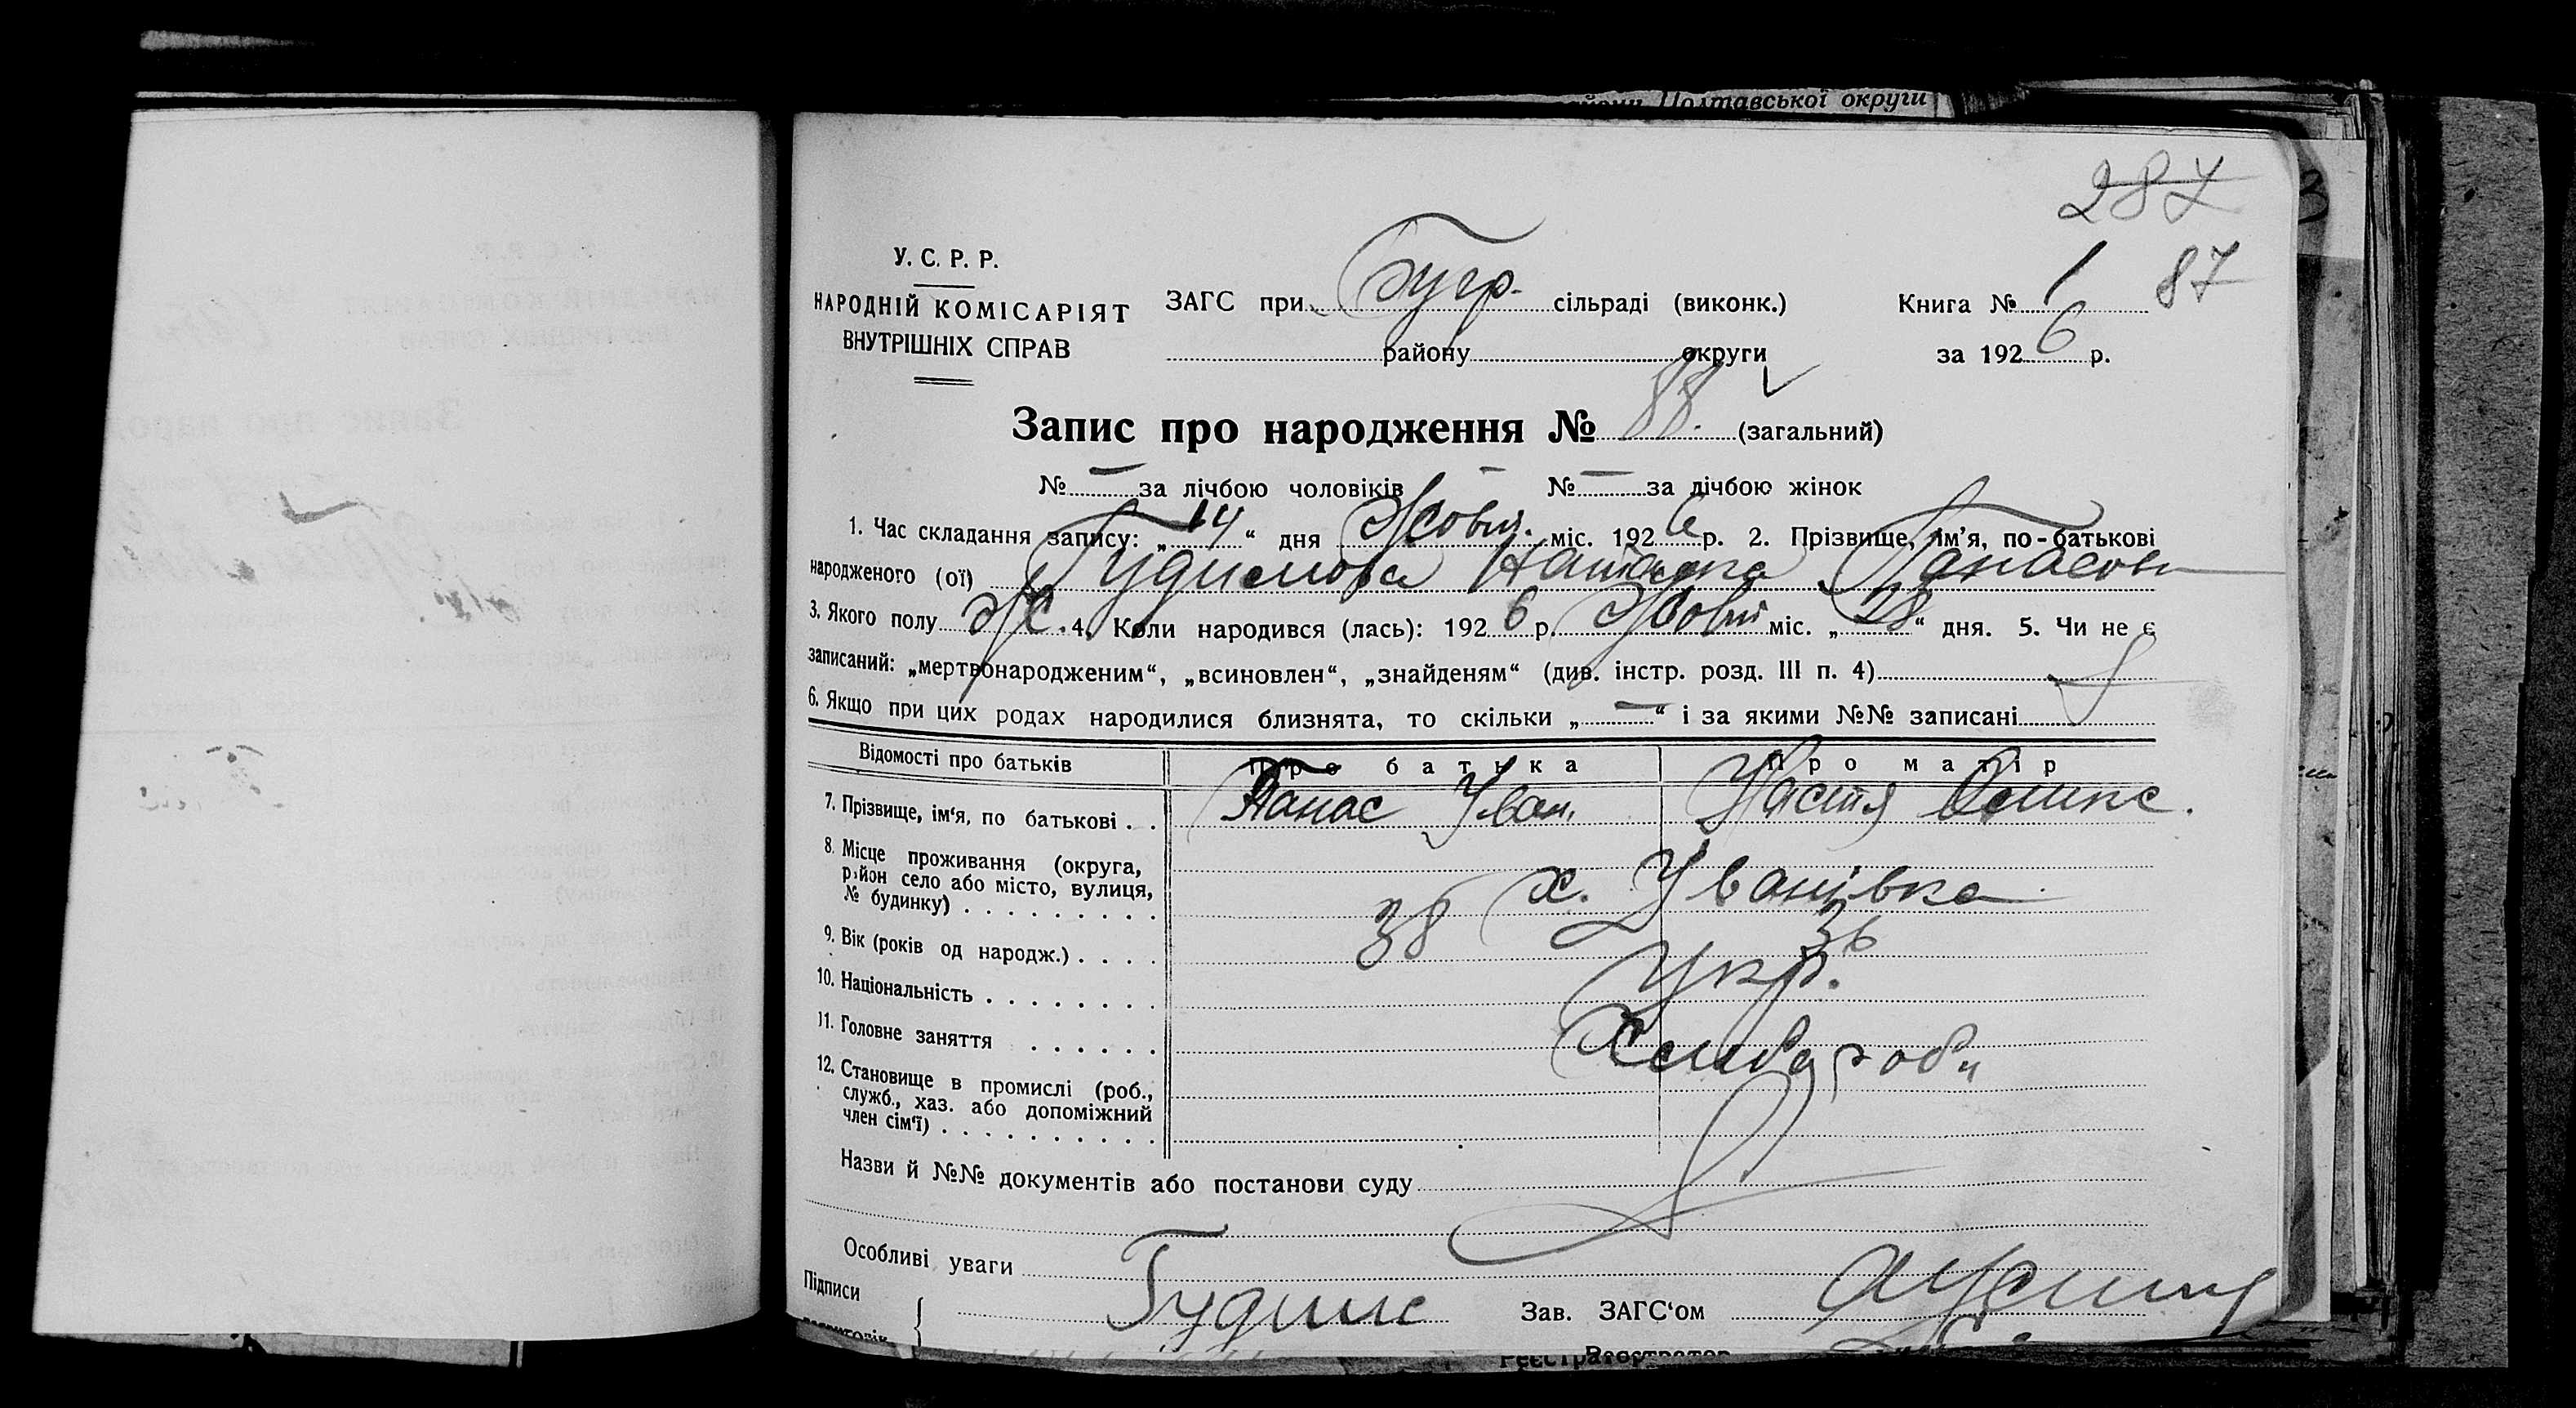 Полтавської округи
287
87
У. С. Р. Р.
НАРОДНІЙ КОМІСАРІЯТ
ВНУТРІШНІХ СПРАВ
ЗАГС при Бугр. сільраді (виконк.)
району округи
Книга № 1
за 1926 р.
Запис про народження № 88. (загальний)
№ — за лічбою чоловіків № — за лічбою жінок
1. Час складання запису: „14“ дня Жовт. міс. 1926 р. 2. Прізвище, ім'я, по-батькові
народженого (ої) Гудимова Наталка Панасов
3. Якого полу Ж. 4. Коли народився (лась): 1926 р. Жовт міс. „28“ дня. 5. Чи не є
записаний: „мертвонародженим“, „всиновлен“, „знайденям“ (див. інстр. розд. III п. 4)
6. Якщо при цих родах народилися близнята, то скільки „—“ і за якими №№ записані
Відомості про батьків Про батька Про матір
7. Прізвище, ім'я, по батькові . . Панас Іван. Настя
8. Місце проживання (округа,
район село або місто, вулиця,
№ будинку) . . . . . . . . . х. Іванівка
9. Вік (років од народж.) . . . . 38 36
10. Національність . . . . . . . . Укр.
11. Головне заняття . . . . . . Хлібороб
12. Становище в промислі (роб.,
служб., хаз. або допоміжний
член сім'ї) . . . . . . . . . .
Назви й №№ документів або постанови суду
Особливі уваги
Підписи
Гудим Зав. ЗАГС'ом